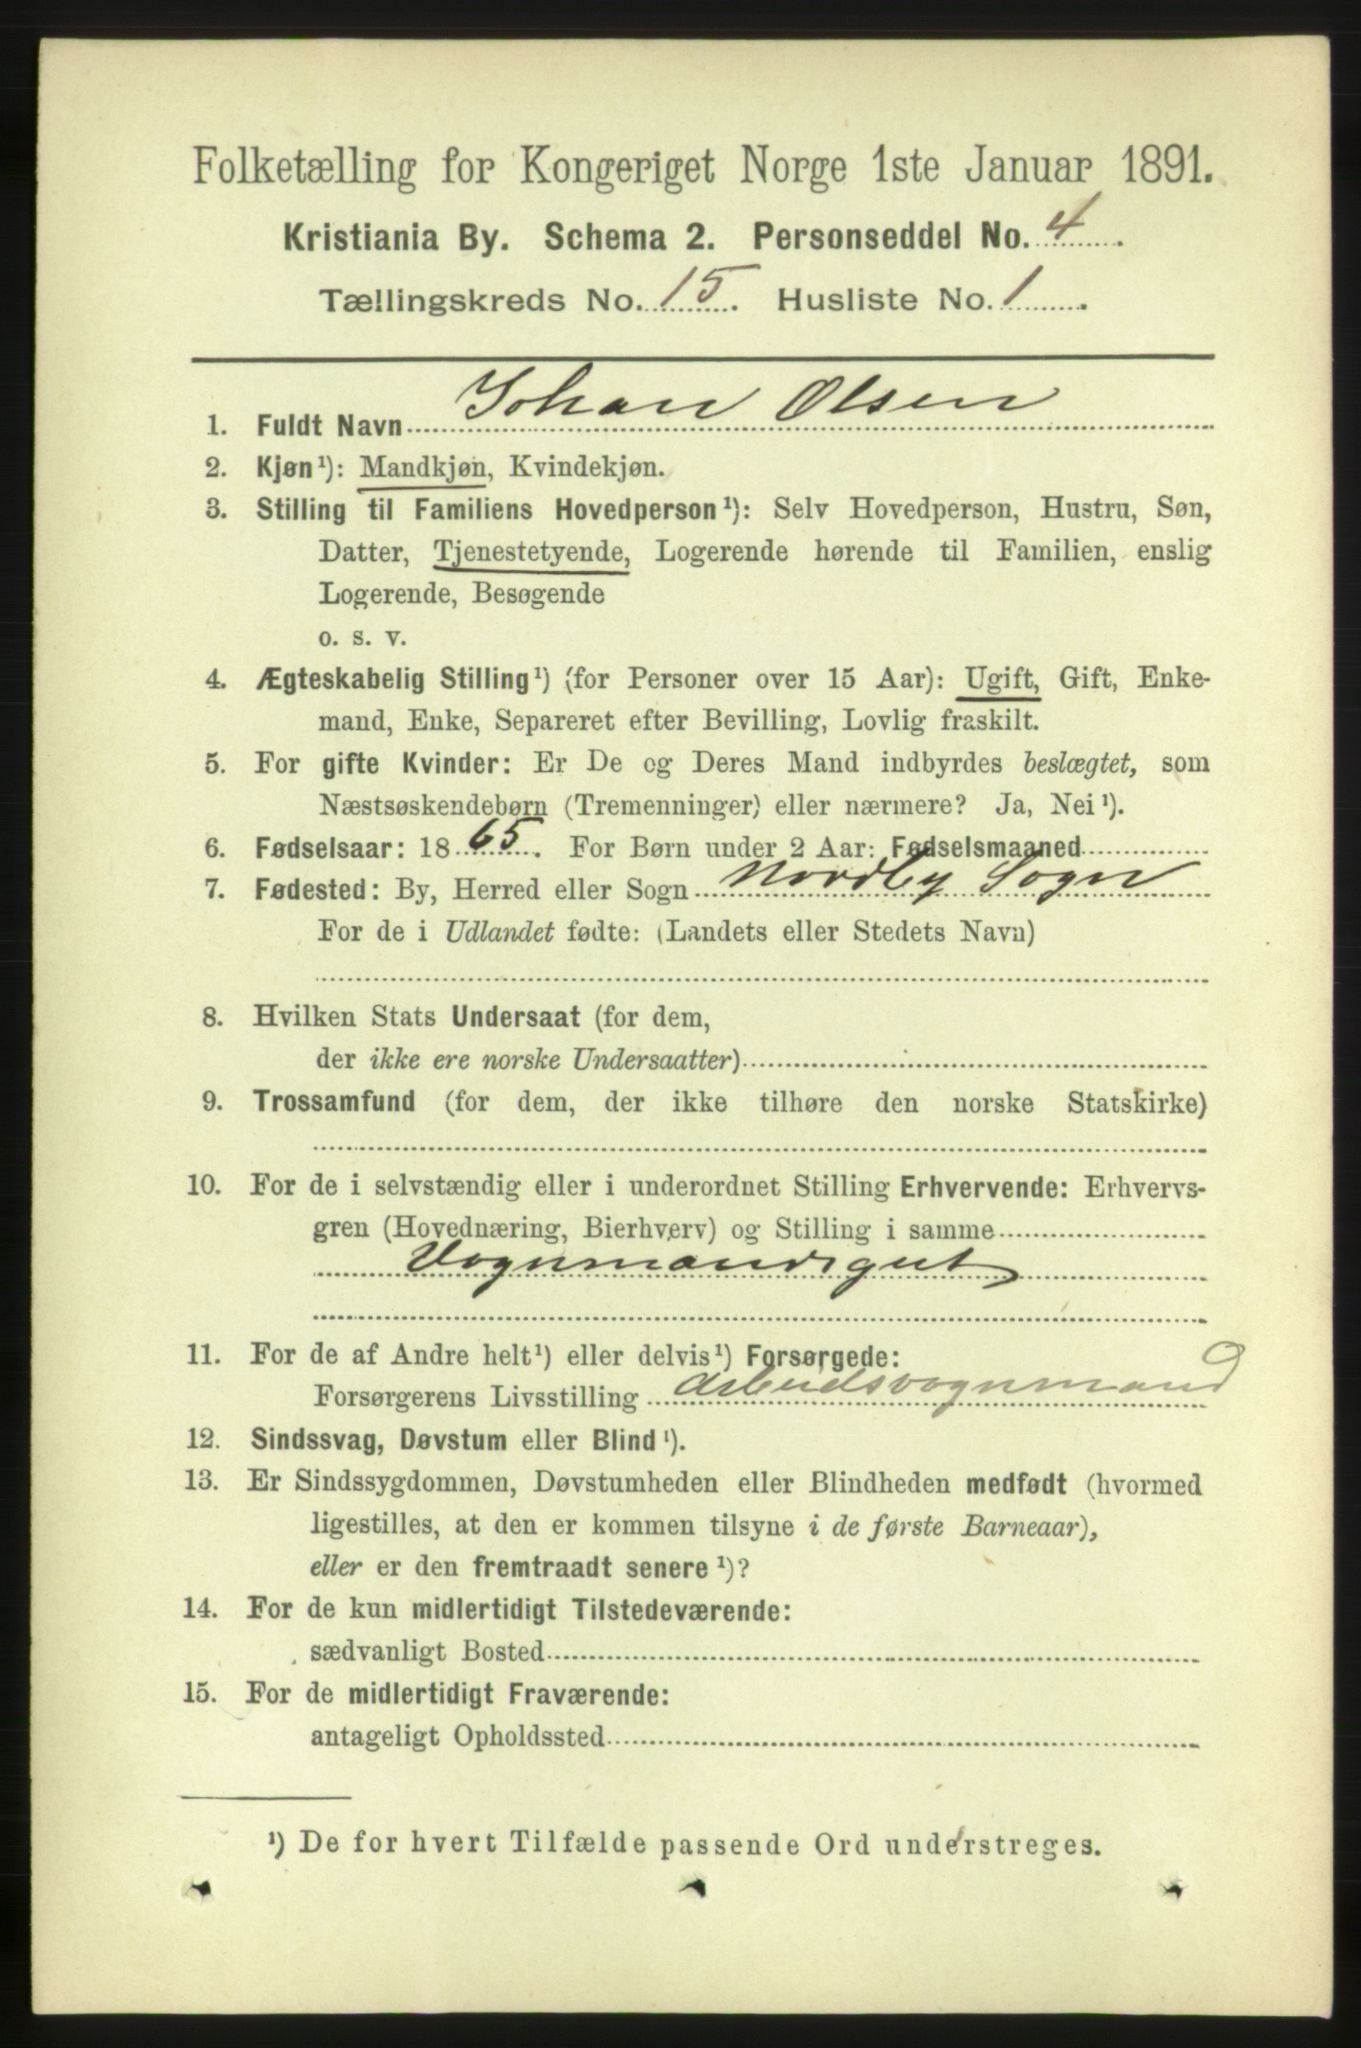 Folketælling for Kongeriget Norge 1ste Januar 1891.
Kristiania By. Schema 2. Personseddel No. 4.
Tællingskreds No. 15. Husliste No. 1.
1. Fuldt Navn Johan Olsen
2. Kjøn¹): Mandkjøn, Kvindekjøn.
3. Stilling til Familiens Hovedperson¹): Selv Hovedperson, Hustru, Søn,
Datter, Tjenestetyende, Logerende hørende til Familien, enslig
Logerende, Besøgende
o. s. v.
4. Ægteskabelig Stilling¹) (for Personer over 15 Aar): Ugift, Gift, Enke-
mand, Enke, Separeret efter Bevilling, Lovlig fraskilt.
5. For gifte Kvinder: Er De og Deres Mand indbyrdes beslægtet, som
Næstsøskendebørn (Tremenninger) eller nærmere? Ja, Nei¹).
6. Fødselsaar: 1865. For Børn under 2 Aar: Fødselsmaaned
7. Fødested: By, Herred eller Sogn Nordby Sogn
For de i Udlandet fødte: (Landets eller Stedets Navn)
8. Hvilken Stats Undersaat (for dem,
der ikke ere norske Undersaatter)
9. Trossamfund (for dem, der ikke tilhøre den norske Statskirke)
10. For de i selvstændig eller i underordnet Stilling Erhvervende: Erhvervs-
gren (Hovednæring, Bierhverv) og Stilling i samme
Vognmandsgut
11. For de af Andre helt¹) eller delvis¹) Forsørgede:
Forsørgerens Livsstilling Arbeidsvognmand
12. Sindssvag, Døvstum eller Blind¹).
13. Er Sindssygdommen, Døvstumheden eller Blindheden medfødt (hvormed
ligestilles, at den er kommen tilsyne i de første Barneaar),
eller er den fremtraadt senere¹)?
14. For de kun midlertidigt Tilstedeværende:
sædvanligt Bosted
15. For de midlertidigt Fraværende:
antageligt Opholdssted
¹) De for hvert Tilfælde passende Ord understreges.